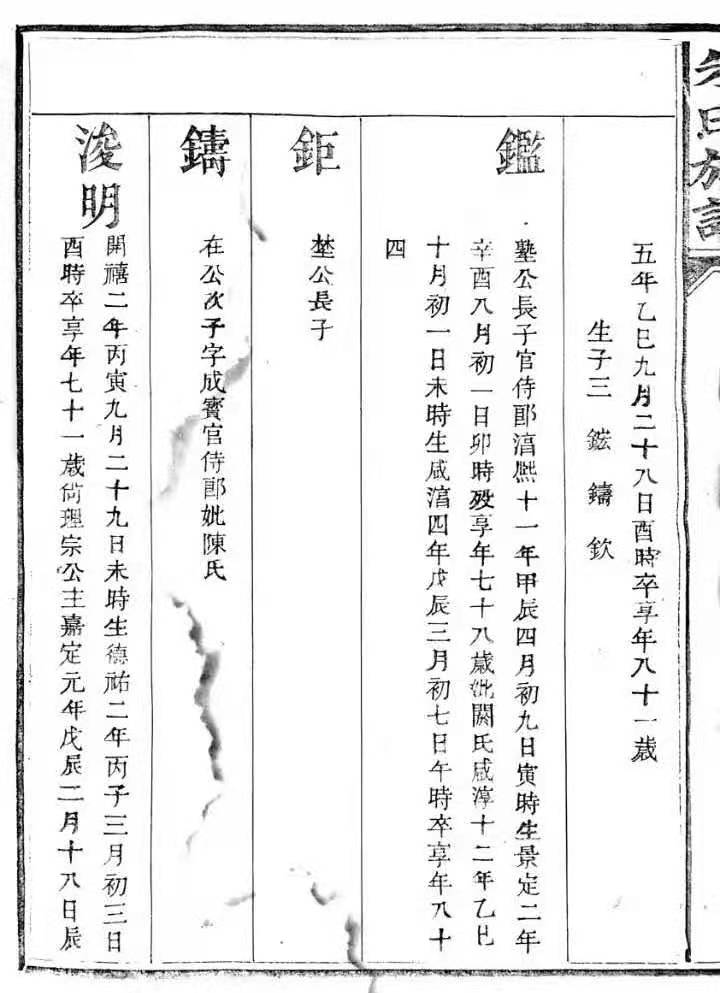 朱氏族譜
五年乙巳九月二十八日酉時卒享年八十一歲
生子三 鎡 鑄 欽
鑑
塾公長子官侍郎淳熈十一年甲辰四月初九日寅時生景定二年
辛酉八月初一日卯時歿享年七十八歲妣闕氏咸淳十二年乙巳
十月初一日未時生咸淳四年戊辰三月初七日午時卒享年八十
四
鉅
埜公長子
鑄
在公次子字成寳官侍郎妣陳氏
浚明
開禧二年丙寅九月二十九日未時生德祐二年丙子三月初三日
酉時卒享年七十一歲尙理宗公主嘉定元年戊辰二月十八日辰